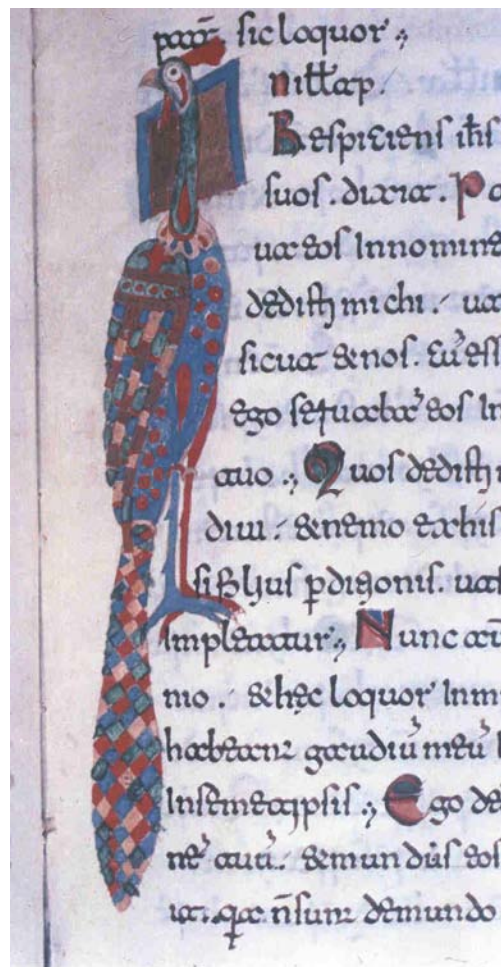 sic loquor
Respiciens ihs
suos . dixit . Pa
ua eos In nomine
dedisti michi . ut
sicut & nos . Cū ess
ego seruabā eos In
tuo . Quos dedisti
diui . & nemo ex his
si filius pditionis . ut
Impleatur . Nunc aut
mo . & hęc loquor In m
habeant gaudiū meū
In semetipsis . Ego de
nē tuū . & mundus eos
it . n̄ sunt de mundo